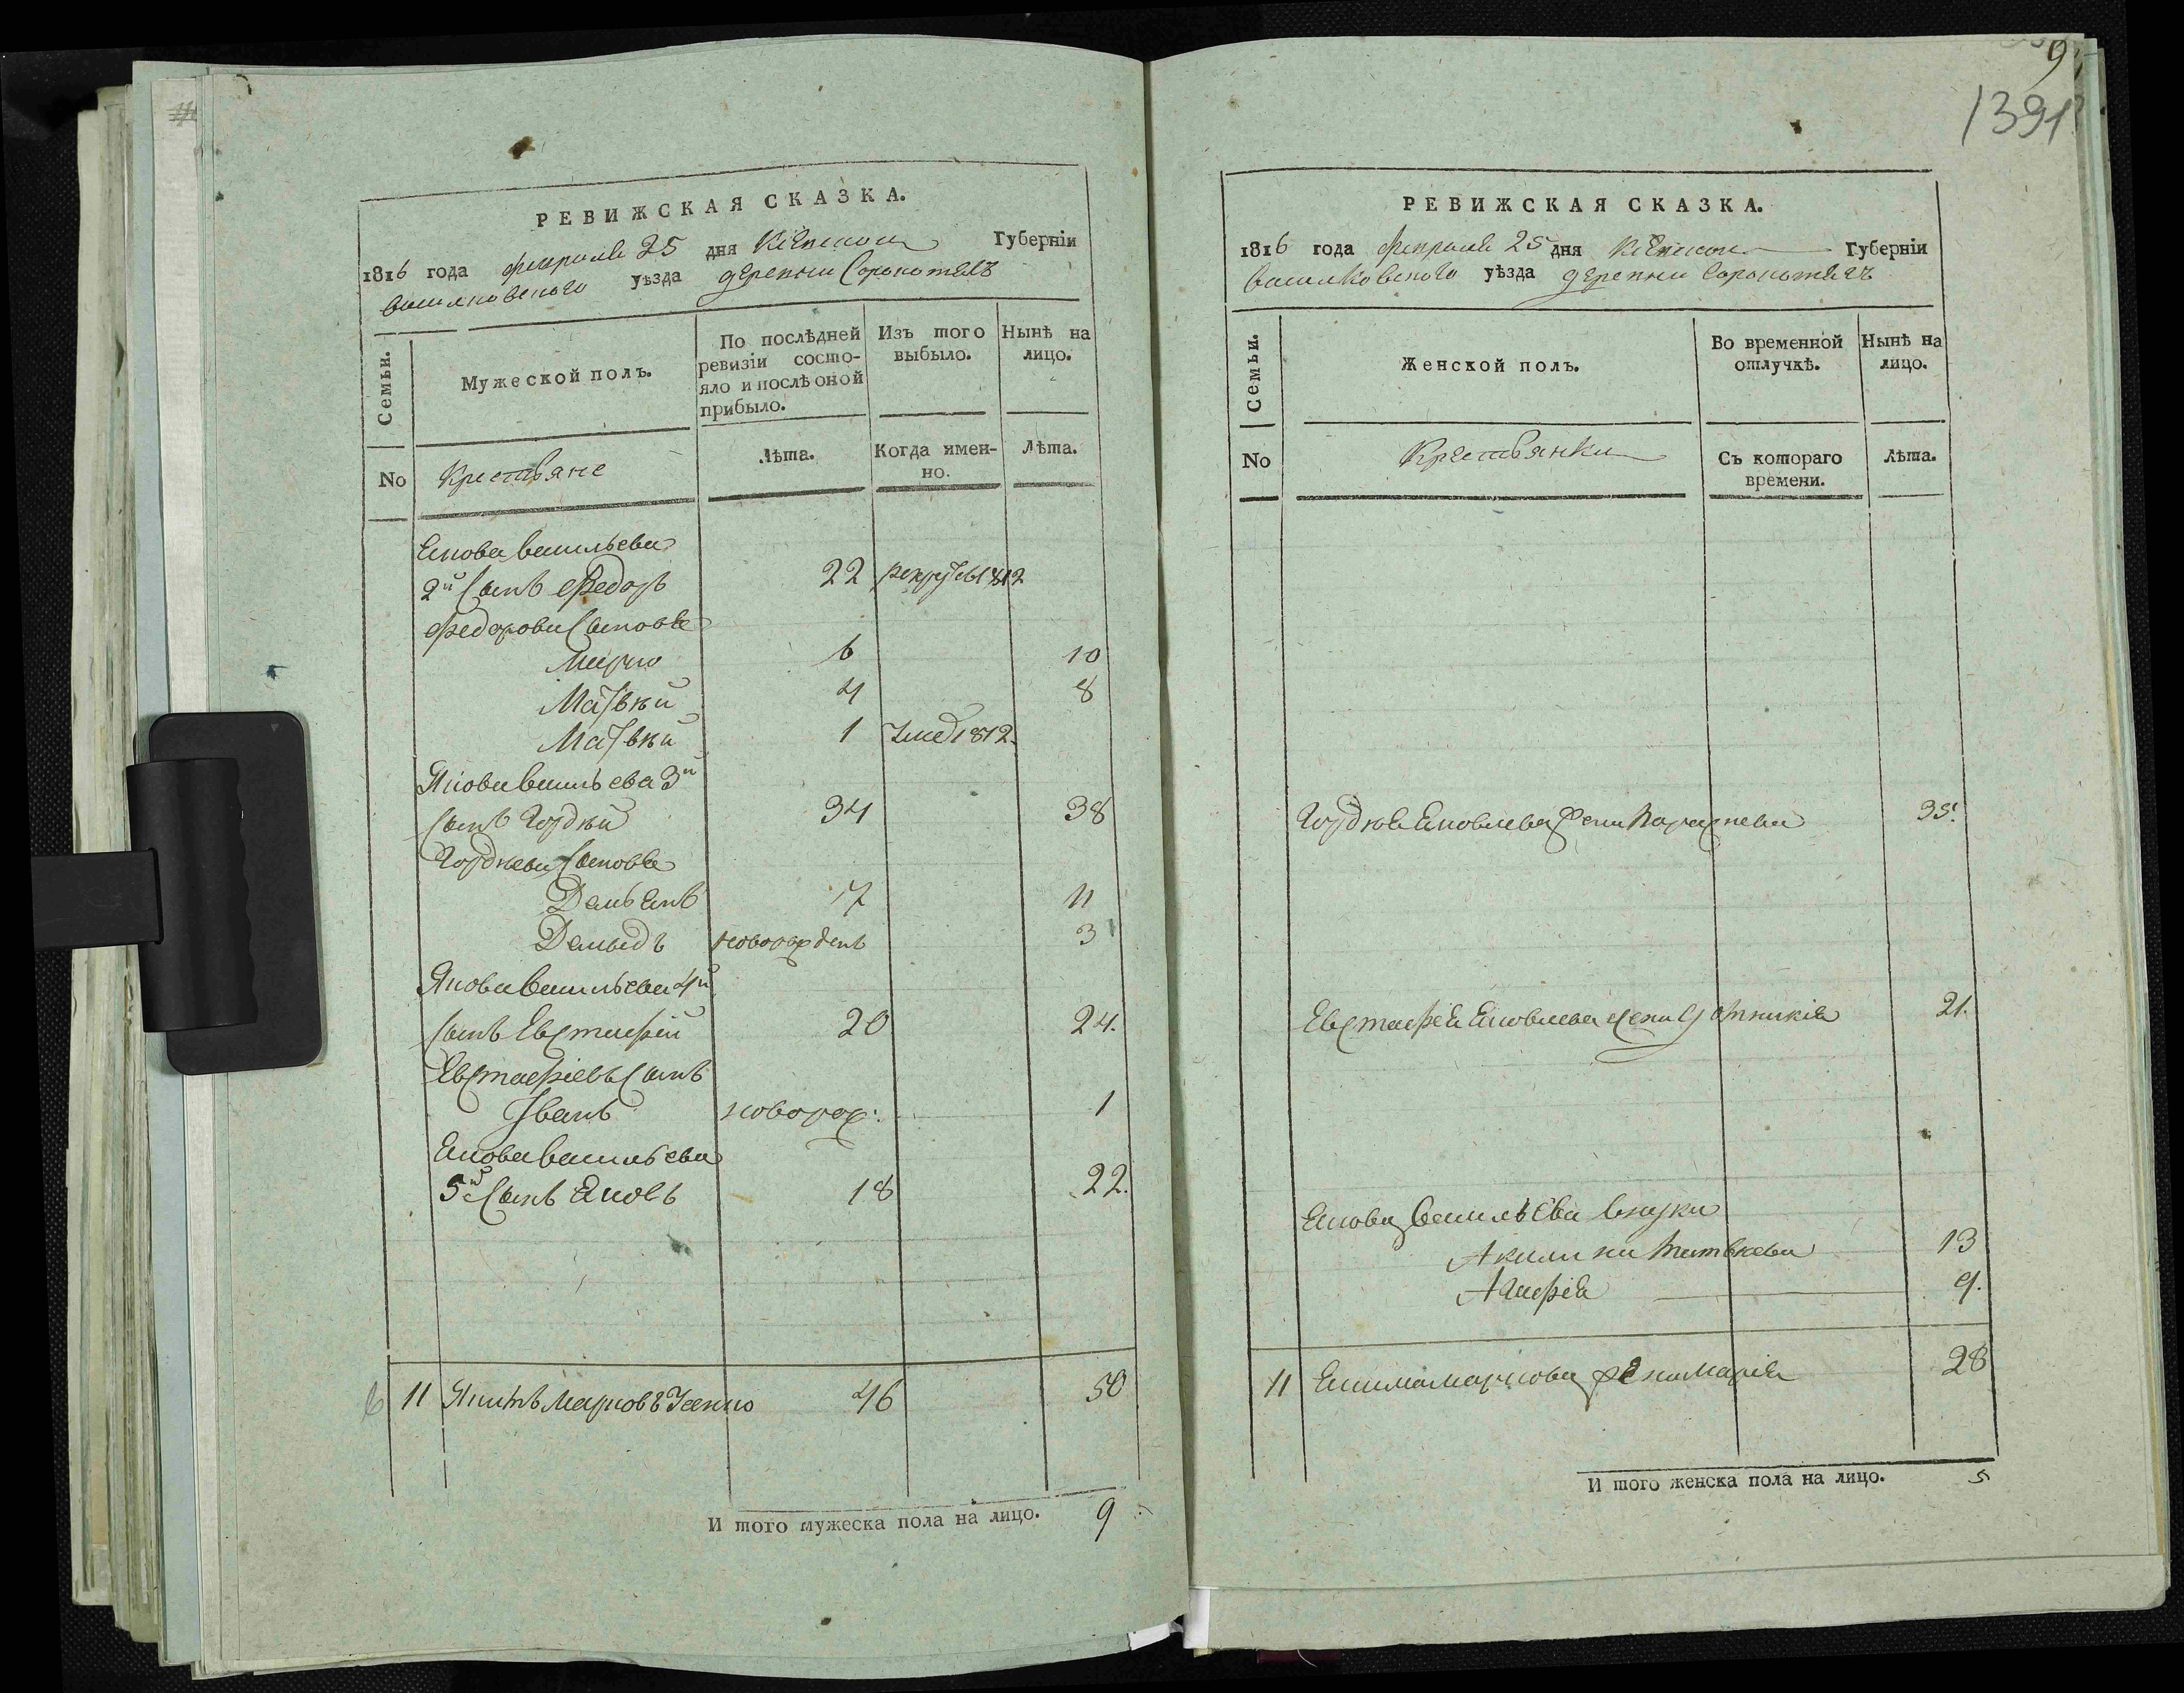 9
1391
РЕВИЖСКАЯ СКАЗКА.
1816 года февраля 25 дня Кіевской Губерніи
васильковского уѣзда деревни Сорокотягъ
Семьи.
Мужеской полъ.
По послѣдней ревизіи состояло и послѣ оной прибыло.
Изъ того выбыло.
Нынѣ на лицо.
No Крестьяне
Лѣта.
Когда именно.
Лѣта.
Якова васильева
2й Сынъ Федоръ 22 рекрутъ 1812
Федорови Сыновя
Марко 6 10
Матвѣй 4 8
Матвѣй 1 умер 1812.
Якова васильева 3й
сынъ Гордѣй 34 38
Гордѣеви Сыновя
Демьянъ 7 11
Демидъ новорожденъ 3
Якова Васильева 4й
сынъ Евстафій 20 24.
Евстафіевъ Сынъ
Иванъ новорож: 1
Якова васильева
5й Сынъ Яковъ 18 22.
11 Якимъ Марковъ 46 50
И того мужеска пола на лицо. 9
РЕВИЖСКАЯ СКАЗКА.
1816 года февраля 25 дня Кіевской Губерніи
васильковского уѣзда деревни Сорокотягъ
Семьи.
Женской полъ.
Во временной отлучкѣ.
Нынѣ на лицо.
No Крестьянки
Съ котораго времени.
Лѣта.
Гордѣя Яковлева жена Параскева 35.
Евстафія Яковлева жена 21.
Якова Васильева внуки
Акилина 13
Агафія 9.
11 Якима Маркова жена Марія 28
И того женска пола на лицо. 5